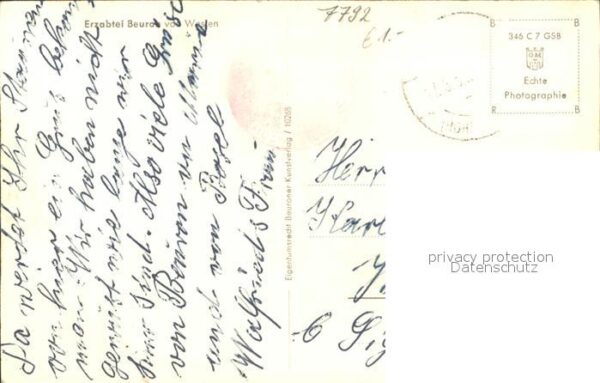 Erzabtei Beuron von Westen
7792
€1.-
346 C 7 GSB
Echte
Photographie
B B
R B
Eigentumsrecht Beuroner Kunstverlag / 10265
Da werdet Ihr Staunen
von hier ein Gruß bekom
men. Wir haben nicht
gewußt wie lange wir
hier sind. Also viele Grüße
von Beuron
und von Rosel
Walfrieds Frau.-
Herr
Kar
privacy protection
Datenschutz